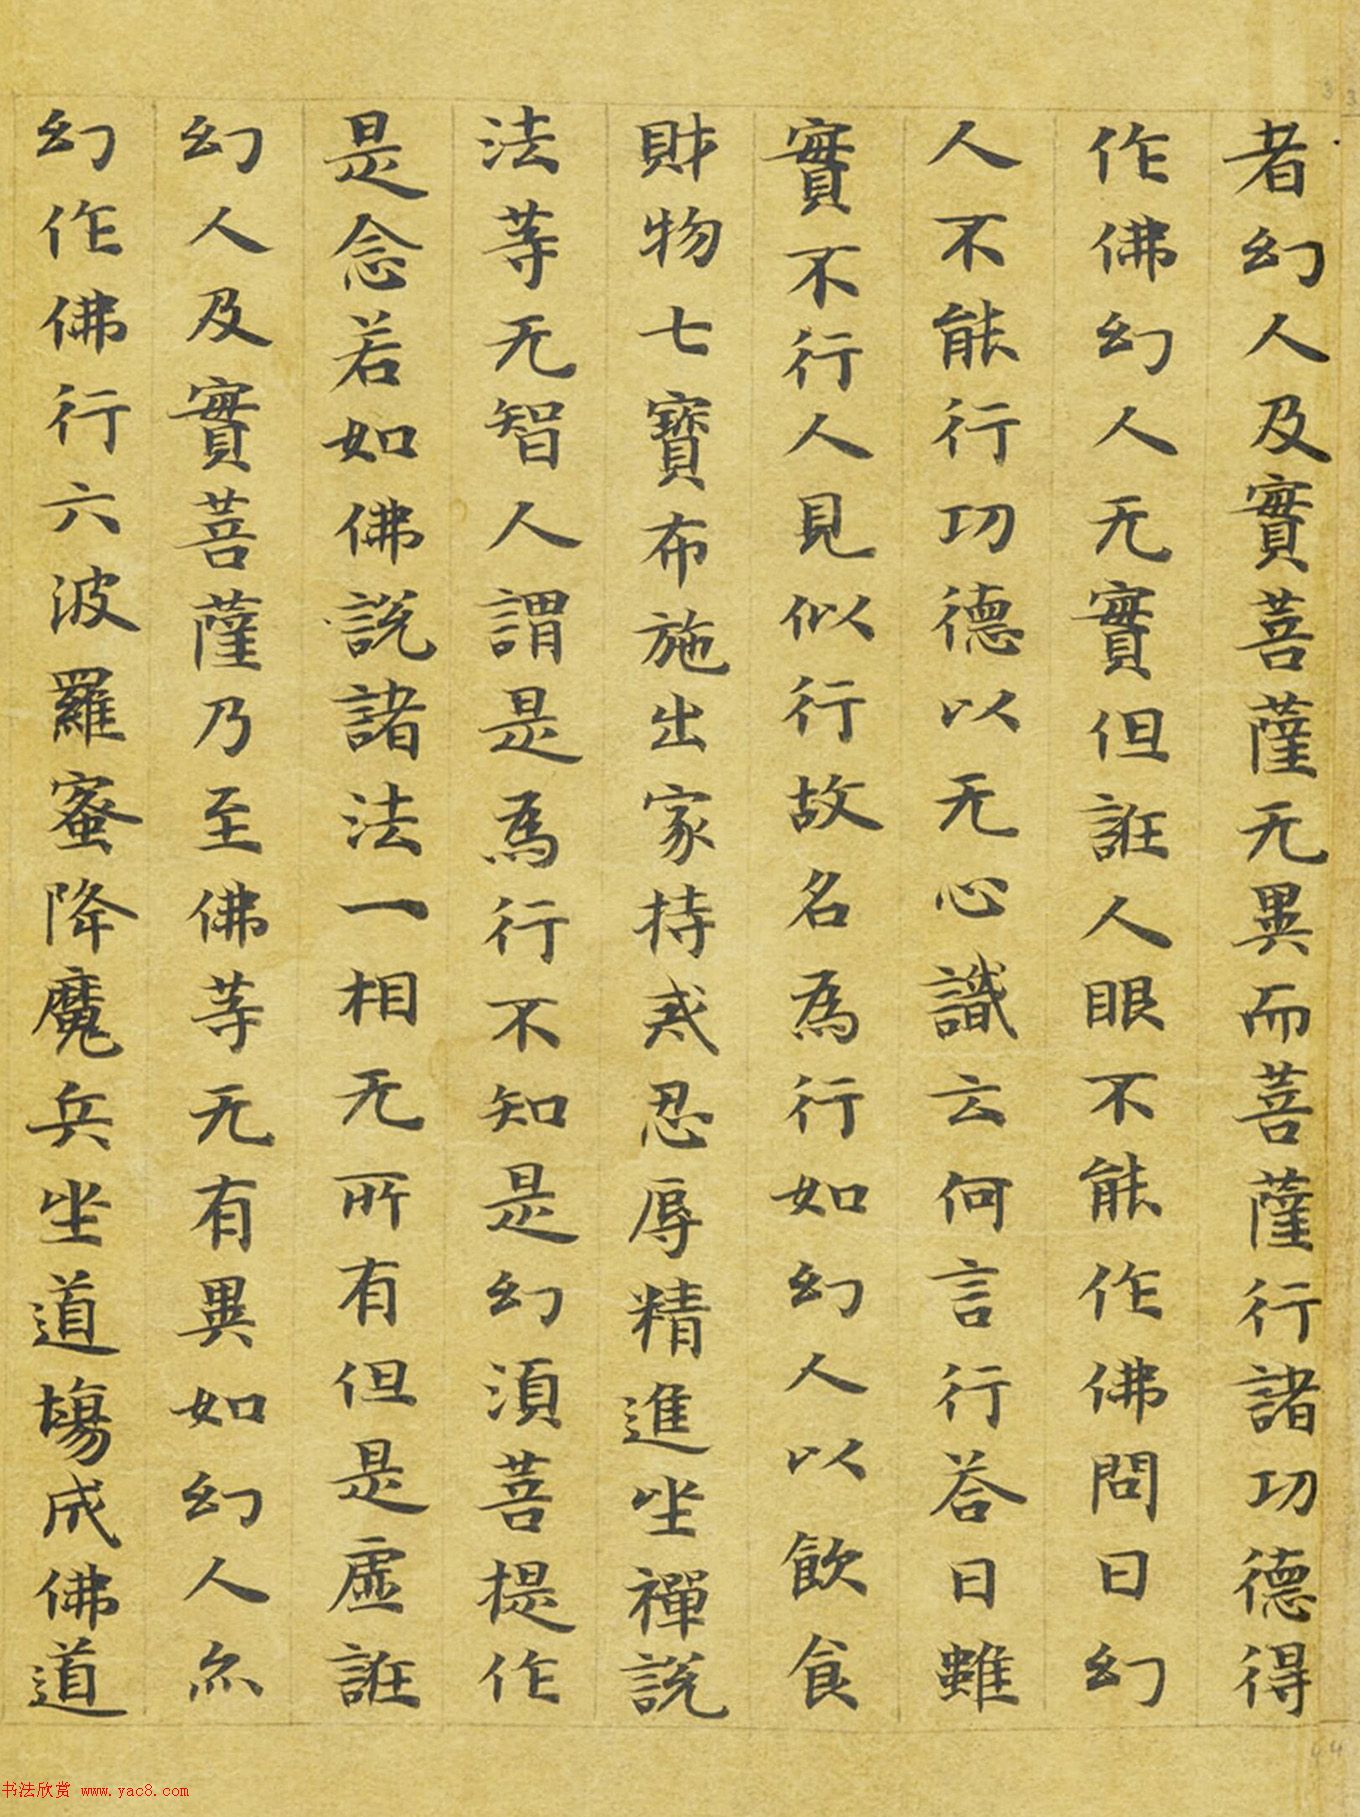 者幻人及實菩薩无異而菩薩行諸功德得
作佛幻人无實但誑人眼不能作佛問曰幻
人不能行功德以无心識云何言行答曰雖
實不行人見似行故名為行如幻人以飲食
財物七寶布施出家持戒忍辱精進坐禪說
法等无智人謂是為行不知是幻須菩提作
是念若如佛說諸法一相无所有但是虛誑
幻人及實菩薩乃至佛等无有異如幻人尒
幻作佛行六波羅蜜降魔兵坐道場成佛道
书法欣赏 www.yac8.com